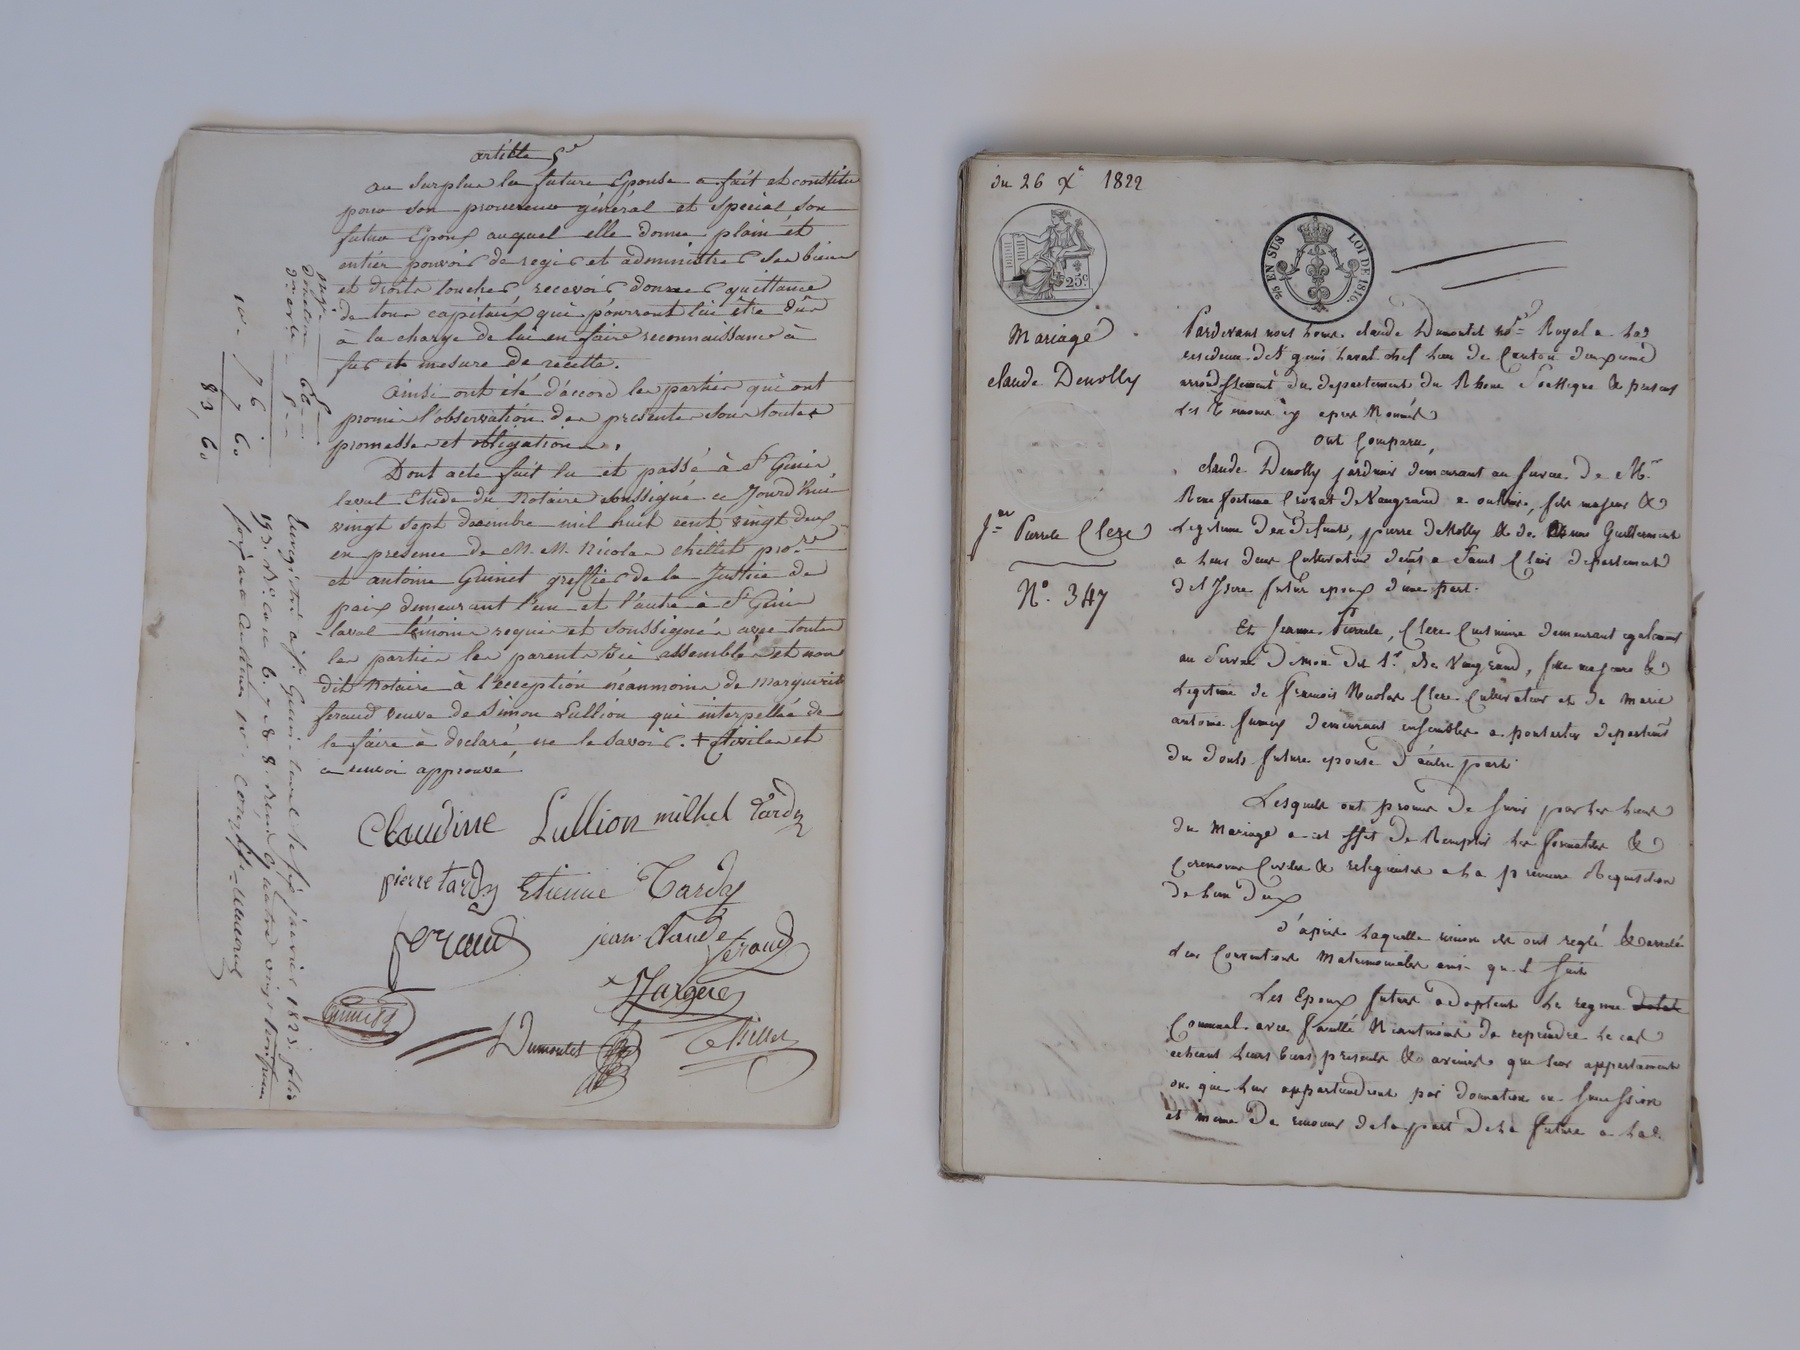 article 5e
au surplus la future Epouse a fait et constitué
pour son procureur général et spécial son
futur Epoux auquel elle donne plain et
entier pouvoir de regir et administrer ses biens
et droits toucher recevoir donner quittance
de tous capitaux qui pourront lui être dûs
à la charge de lui en faire reconnaissance à
fur et mesure de recette.
Ainsi ont été d'accord les parties qui ont
promis l'observation des presentes sous toutes
promesses et obligations.
Dont acte fait lu et passé à St Genis
laval Etude du Notaire soussigné ce Jourd'hui
vingt sept decembre mil huit cent vingt deux
en presence de M. M. Nicolas chillet pro.re
et antoine Guinet greffier de la Justice de
paix demeurant l'un et l'autre à St Genis
-laval témoins requis et soussignés avec toutes
les parties les parents ici assemblés et nous
dit Notaire à l'exception néanmoins de Marguerite
feraud veuve de Simon Lullion qui interpellée de
le faire à declaré ne le savoir. + Civiles et
a renvoi approuvé
Claudine Lullion milhel tardy
pierre tardy Etienne Tardy
feraud jean Claude feraud
Guinet
Dumontet Chillet
10 - 76 - 60
7
83, 60
Enregistré à St Genis laval le six janvier 1823. folio
193. R.o case 6. 7 et 8. Reçu quatre vingt trois francs
du 26 Xe 1822
25c
5/5 EN SUS LOI DE 1816.
Mariage
claude Denolly
Jne Pierrete Clere
No. 347
Pardevant nous Louis claude Dumontet nore Royal a la
residence de St genis laval chef lieu de Canton du premier
arrondissement du departement du Rhone Soussigné & presens
Les Temoins cy apres Nommés
Ont Comparu,
claude Denolly jardinier demeurant au service de Mr
Rene fortune Crozat de Vaugrand a oullins, fils majeur &
Legitime des defunts, pierre deNolly & de Guillermont
a leurs deces Cultivateurs a Saint Clair departement
de l'Isere futur epoux d'une part.
Et Jeanne Pierrete, Clere Cuisiniere demeurant egalement
au Service de mon dit Sr. de Vaugrand, fille majeure &
Legitime de francois Nicolas Clere Cultivateur et de Marie
antoine demeurant ensembles a pontarlier departement
du doubs future epouse d'autre part.
Lesquels ont promis de s'unir par les liens
du Mariage a cet effet de Remplir les formalités &
Ceremonies Civiles & religieuses a la premiere Requisition
de l'un d'eux
d'après laquelle union ils ont reglé & arreté
Leurs Conventions Matrimoniales ainsi qu'il suit
Les Epoux futurs adoptent le regime dotal
Communal avec faculté Néantmoins de reprendre le cas
echeant leurs biens presents & avenirs que leur appartiennent
ou que leur appartiendront par donation ou Succession
et meme de renoncer de la part de la future a la de